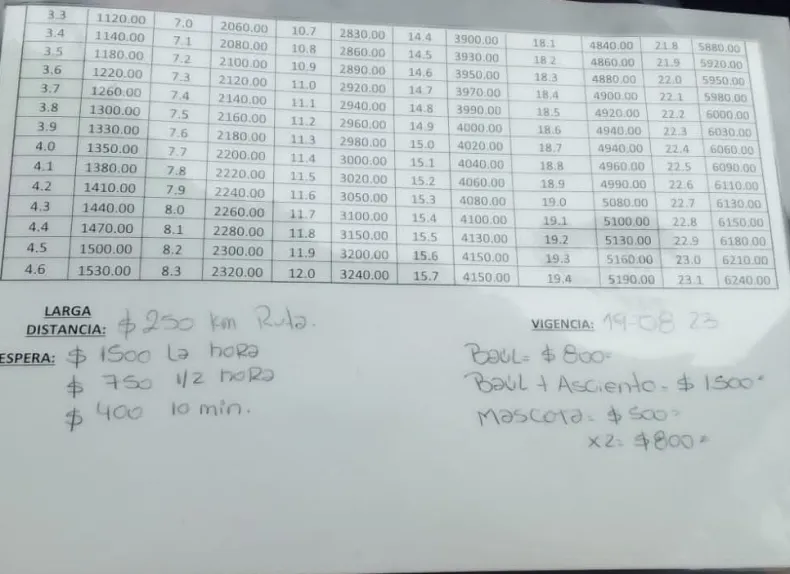 3.3 1120.00 7.0 2060.00 10.7 2830.00 14.4 3900.00 18.1 4840.00 21.8 5880.00
3.4 1140.00 7.1 2080.00 10.8 2860.00 14.5 3930.00 18.2 4860.00 21.9 5920.00
3.5 1180.00 7.2 2100.00 10.9 2890.00 14.6 3950.00 18.3 4880.00 22.0 5950.00
3.6 1220.00 7.3 2120.00 11.0 2920.00 14.7 3970.00 18.4 4900.00 22.1 5980.00
3.7 1260.00 7.4 2140.00 11.1 2940.00 14.8 3990.00 18.5 4920.00 22.2 6000.00
3.8 1300.00 7.5 2160.00 11.2 2960.00 14.9 4000.00 18.6 4940.00 22.3 6030.00
3.9 1330.00 7.6 2180.00 11.3 2980.00 15.0 4020.00 18.7 4940.00 22.4 6060.00
4.0 1350.00 7.7 2200.00 11.4 3000.00 15.1 4040.00 18.8 4960.00 22.5 6090.00
4.1 1380.00 7.8 2220.00 11.5 3020.00 15.2 4060.00 18.9 4990.00 22.6 6110.00
4.2 1410.00 7.9 2240.00 11.6 3050.00 15.3 4080.00 19.0 5080.00 22.7 6130.00
4.3 1440.00 8.0 2260.00 11.7 3100.00 15.4 4100.00 19.1 5100.00 22.8 6150.00
4.4 1470.00 8.1 2280.00 11.8 3150.00 15.5 4130.00 19.2 5130.00 22.9 6180.00
4.5 1500.00 8.2 2300.00 11.9 3200.00 15.6 4150.00 19.3 5160.00 23.0 6210.00
4.6 1530.00 8.3 2320.00 12.0 3240.00 15.7 4150.00 19.4 5190.00 23.1 6240.00
LARGA
DISTANCIA: $ 250 km Ruta.
ESPERA: $ 1500 La hora
$ 750 1/2 hora
$ 400 10 min.
VIGENCIA: 19-08 23
Baúl= $ 800=
Baúl + Asciento= $ 1500=
Mascota= $ 500=
x2= $800=